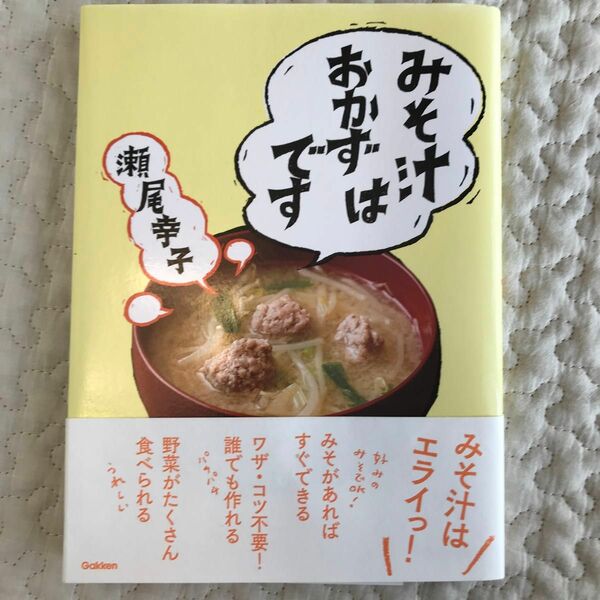 みそ汁は
おかずです
瀬尾幸子
みそ汁は
エライっ!
好みの
みそでOK!
みそがあれば
すぐできる
ワザ・コツ不要!
誰でも作れる
パカパカ
野菜がたくさん
食べられる
うれしい
Gakken